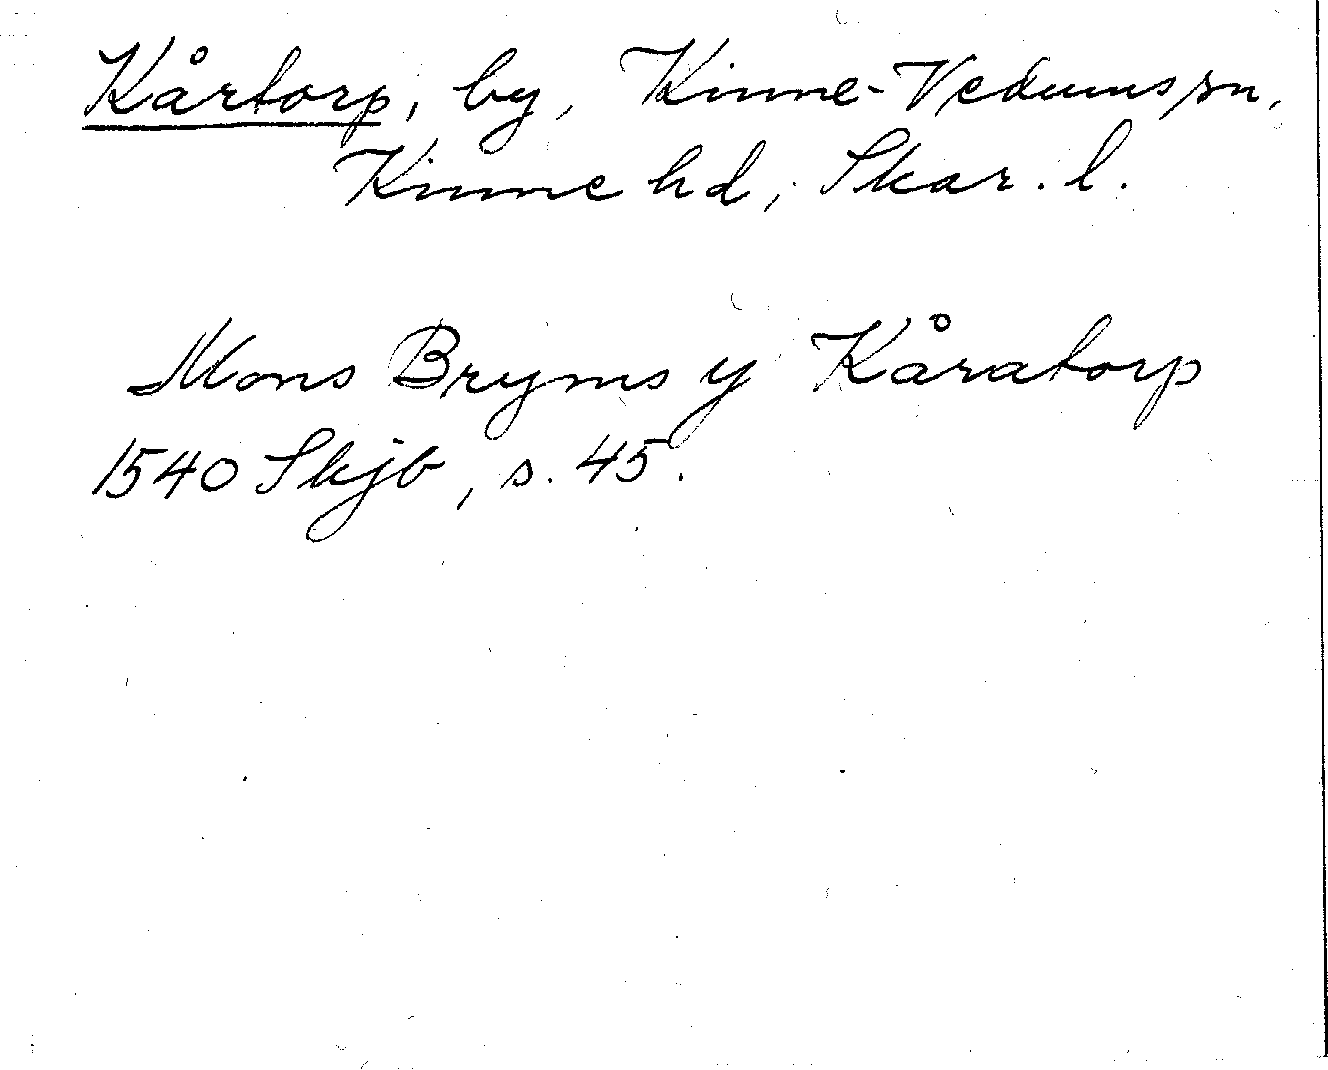 Kårtorp, by, Kinne-Vedums sn,
Kinne hd, Skar. l.
Mons Bryms y Kåratorp
1540 Skjb, s. 45.